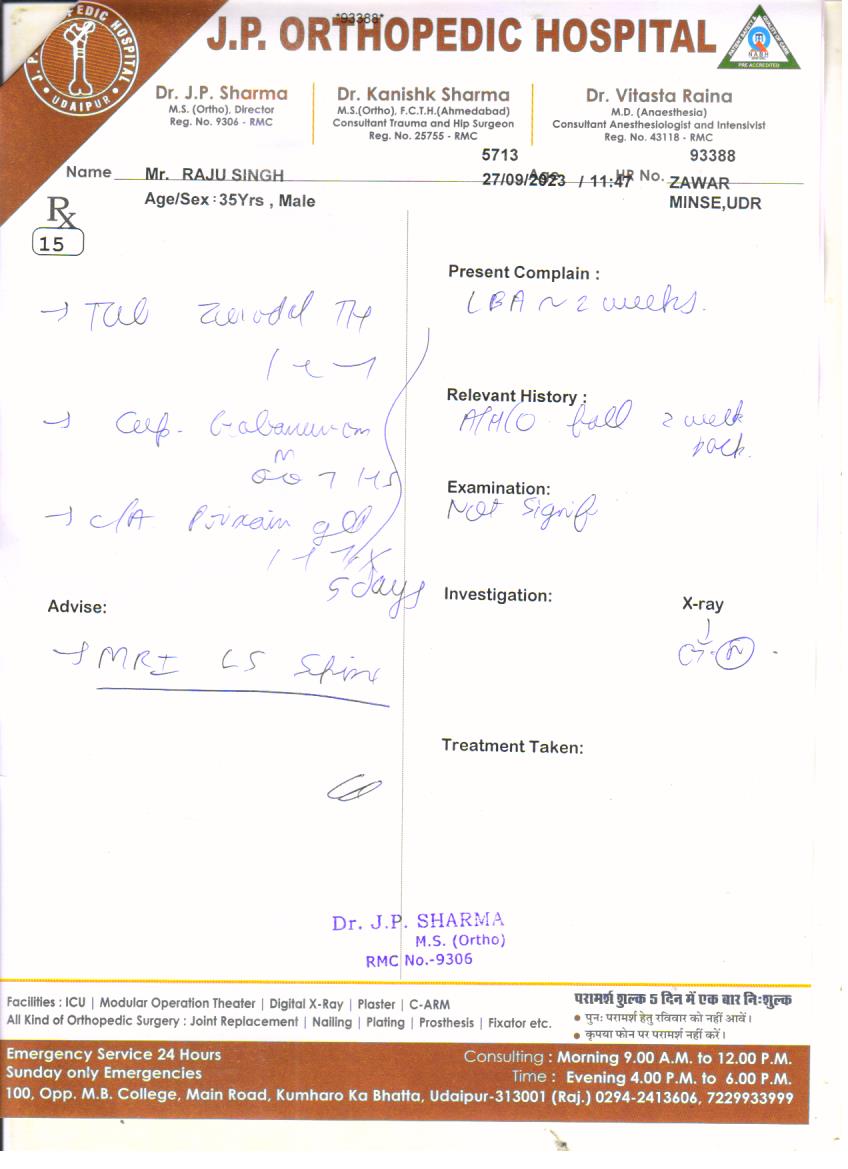 *93388*
J.P. ORTHOPEDIC HOSPITAL
J. P. ORTHOPEDIC HOSPITAL
UDAIPUR
PRE ACCREDITED
Dr. J.P. Sharma
M.S. (Ortho), Director
Reg. No. 9306 - RMC
Dr. Kanishk Sharma
M.S.(Ortho), F.C.T.H.(Ahmedabad)
Consultant Trauma and Hip Surgeon
Reg. No. 25755 - RMC
Dr. Vitasta Raina
M.D. (Anaesthesia)
Consultant Anesthesiologist and Intensivist
Reg. No. 43118 - RMC
5713 93388
Name Mr. RAJU SINGH 27/09/2023 / 11:47 HR No. ZAWAR
Age/Sex : 35Yrs , Male MINSE,UDR
Rx
15
→ Tab TH
1
→ Cap.
HS
→ gel
5 days
Advise:
→ MRI LS Spine
Present Complain :
LBA ~ 2 weeks.
Relevant History :
fall 2 week
back.
Examination:
Not Signif
Investigation:
X-ray
N
Treatment Taken:
Dr. J.P. SHARMA
M.S. (Ortho)
RMC No.-9306
Facilities : ICU | Modular Operation Theater | Digital X-Ray | Plaster | C-ARM
All Kind of Orthopedic Surgery : Joint Replacement | Nailing | Plating | Prosthesis | Fixator etc.
परामर्श शुल्क 5 दिन में एक बार निःशुल्क
• पुनः परामर्श हेतु रविवार को नहीं आवें।
• कृपया फोन पर परामर्श नहीं करें।
Emergency Service 24 Hours
Sunday only Emergencies
Consulting : Morning 9.00 A.M. to 12.00 P.M.
Time : Evening 4.00 P.M. to 6.00 P.M.
100, Opp. M.B. College, Main Road, Kumharo Ka Bhatta, Udaipur-313001 (Raj.) 0294-2413606, 7229933999